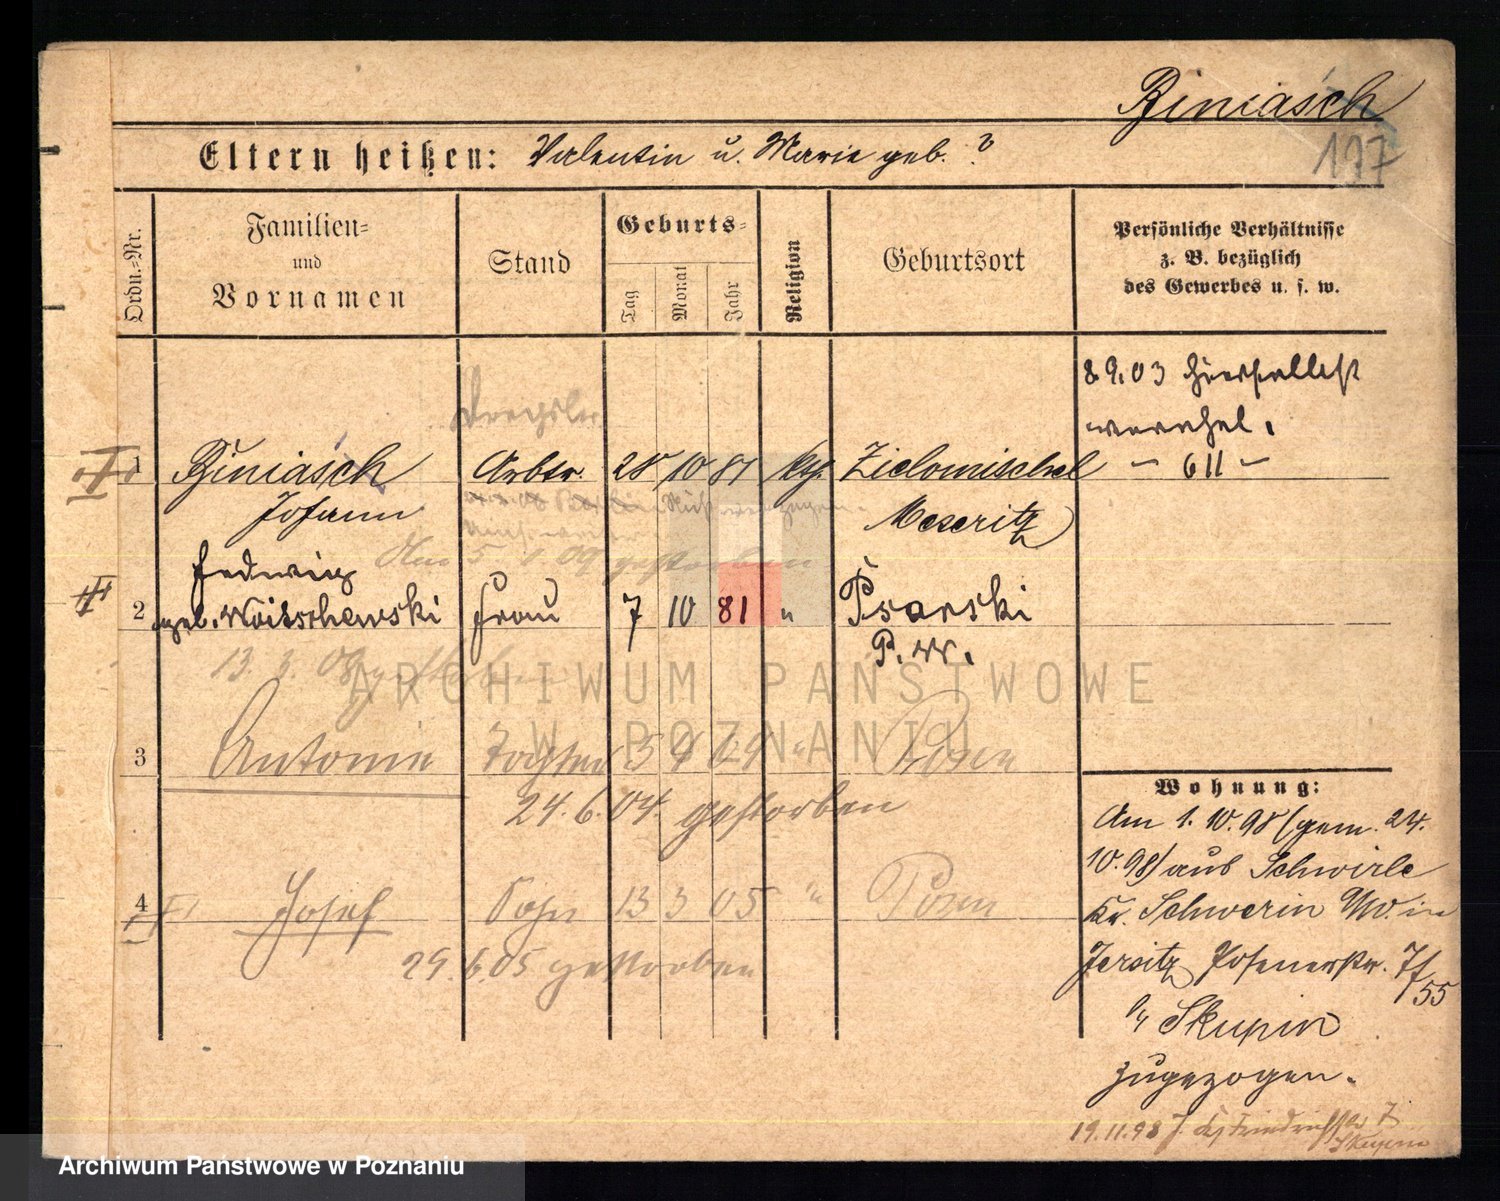 Biniasch
197
Eltern heißen: Valentin u. Marie geb. ?
Ordn.-Nr.
Familien-
und
Vornamen
Stand
Geburts-
Tag
Monat
Jahr
Religion
Geburtsort
Persönliche Verhältnisse
z. B. bezüglich
des Gewerbes u. s. w.
8.9.03 hierselbst
verehel.
– 611 –
1 Biniasch Arbtr. 28 10 81 kth. Zielomischel
Johann Meseritz
gestorben
Hedwig
2 geb. Woitschewski Frau 7 10 81 " Psarski
P. W.
13. 3. 08 gestorben
3 Antonie Tochter Posen
24. 6. 04. gestorben
4 Josef Sohn 13 3 05 " Posen
29. 6. 05 gestorben
Wohnung:
Am 1. 10. 98 (gem. 24.
10. 98) aus Schwirle
Kr. Schwerin W. in
Jersitz Posenerstr. 7/
55
b/ Skupin
zugezogen.
19.11.98
Skupin
ARCHIWUM PAŃSTWOWE
W POZNANIU
Archiwum Państwowe w Poznaniu